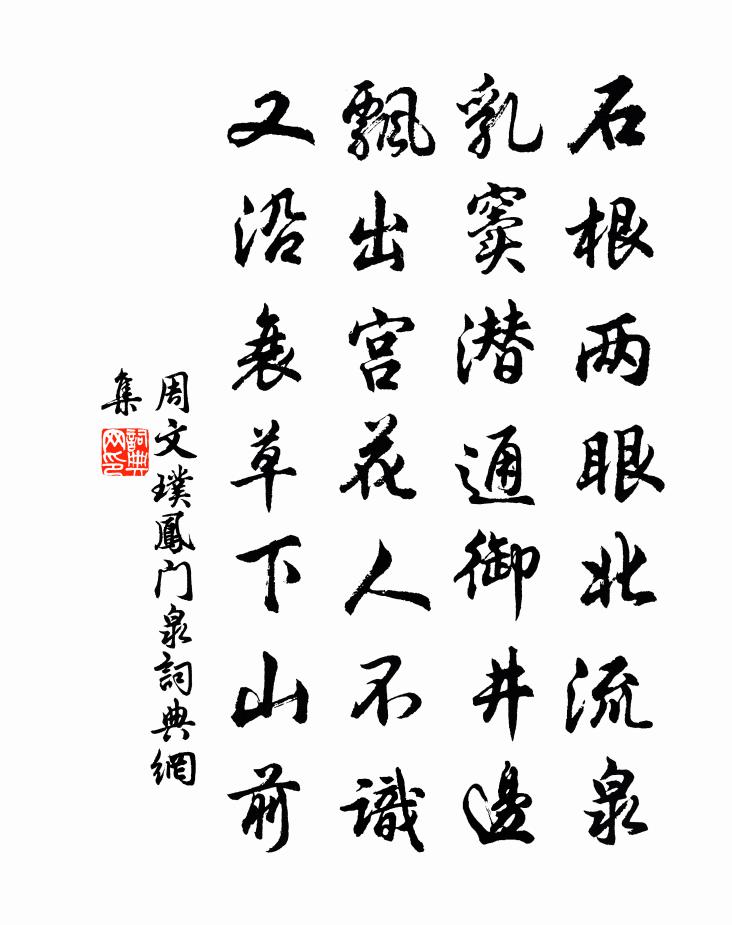 石根两眼北流泉
乳窦潜通御井邊
飄出宫花人不識
又沿衰草下山前
周文璞鳳门泉詞典網
集
詞典
网印